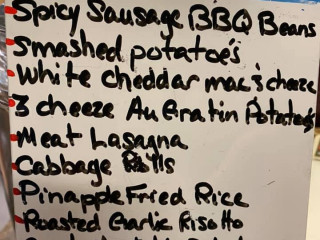 Spicy Sausage BBQ Beans
Smashed potatoe's
White cheddar mac's cheeze
3 cheeze Au Gratin Potatoes
Meat Lasagna
Cabbage Rolls
Pinapple Fried Rice
Roasted Garlic Risotto